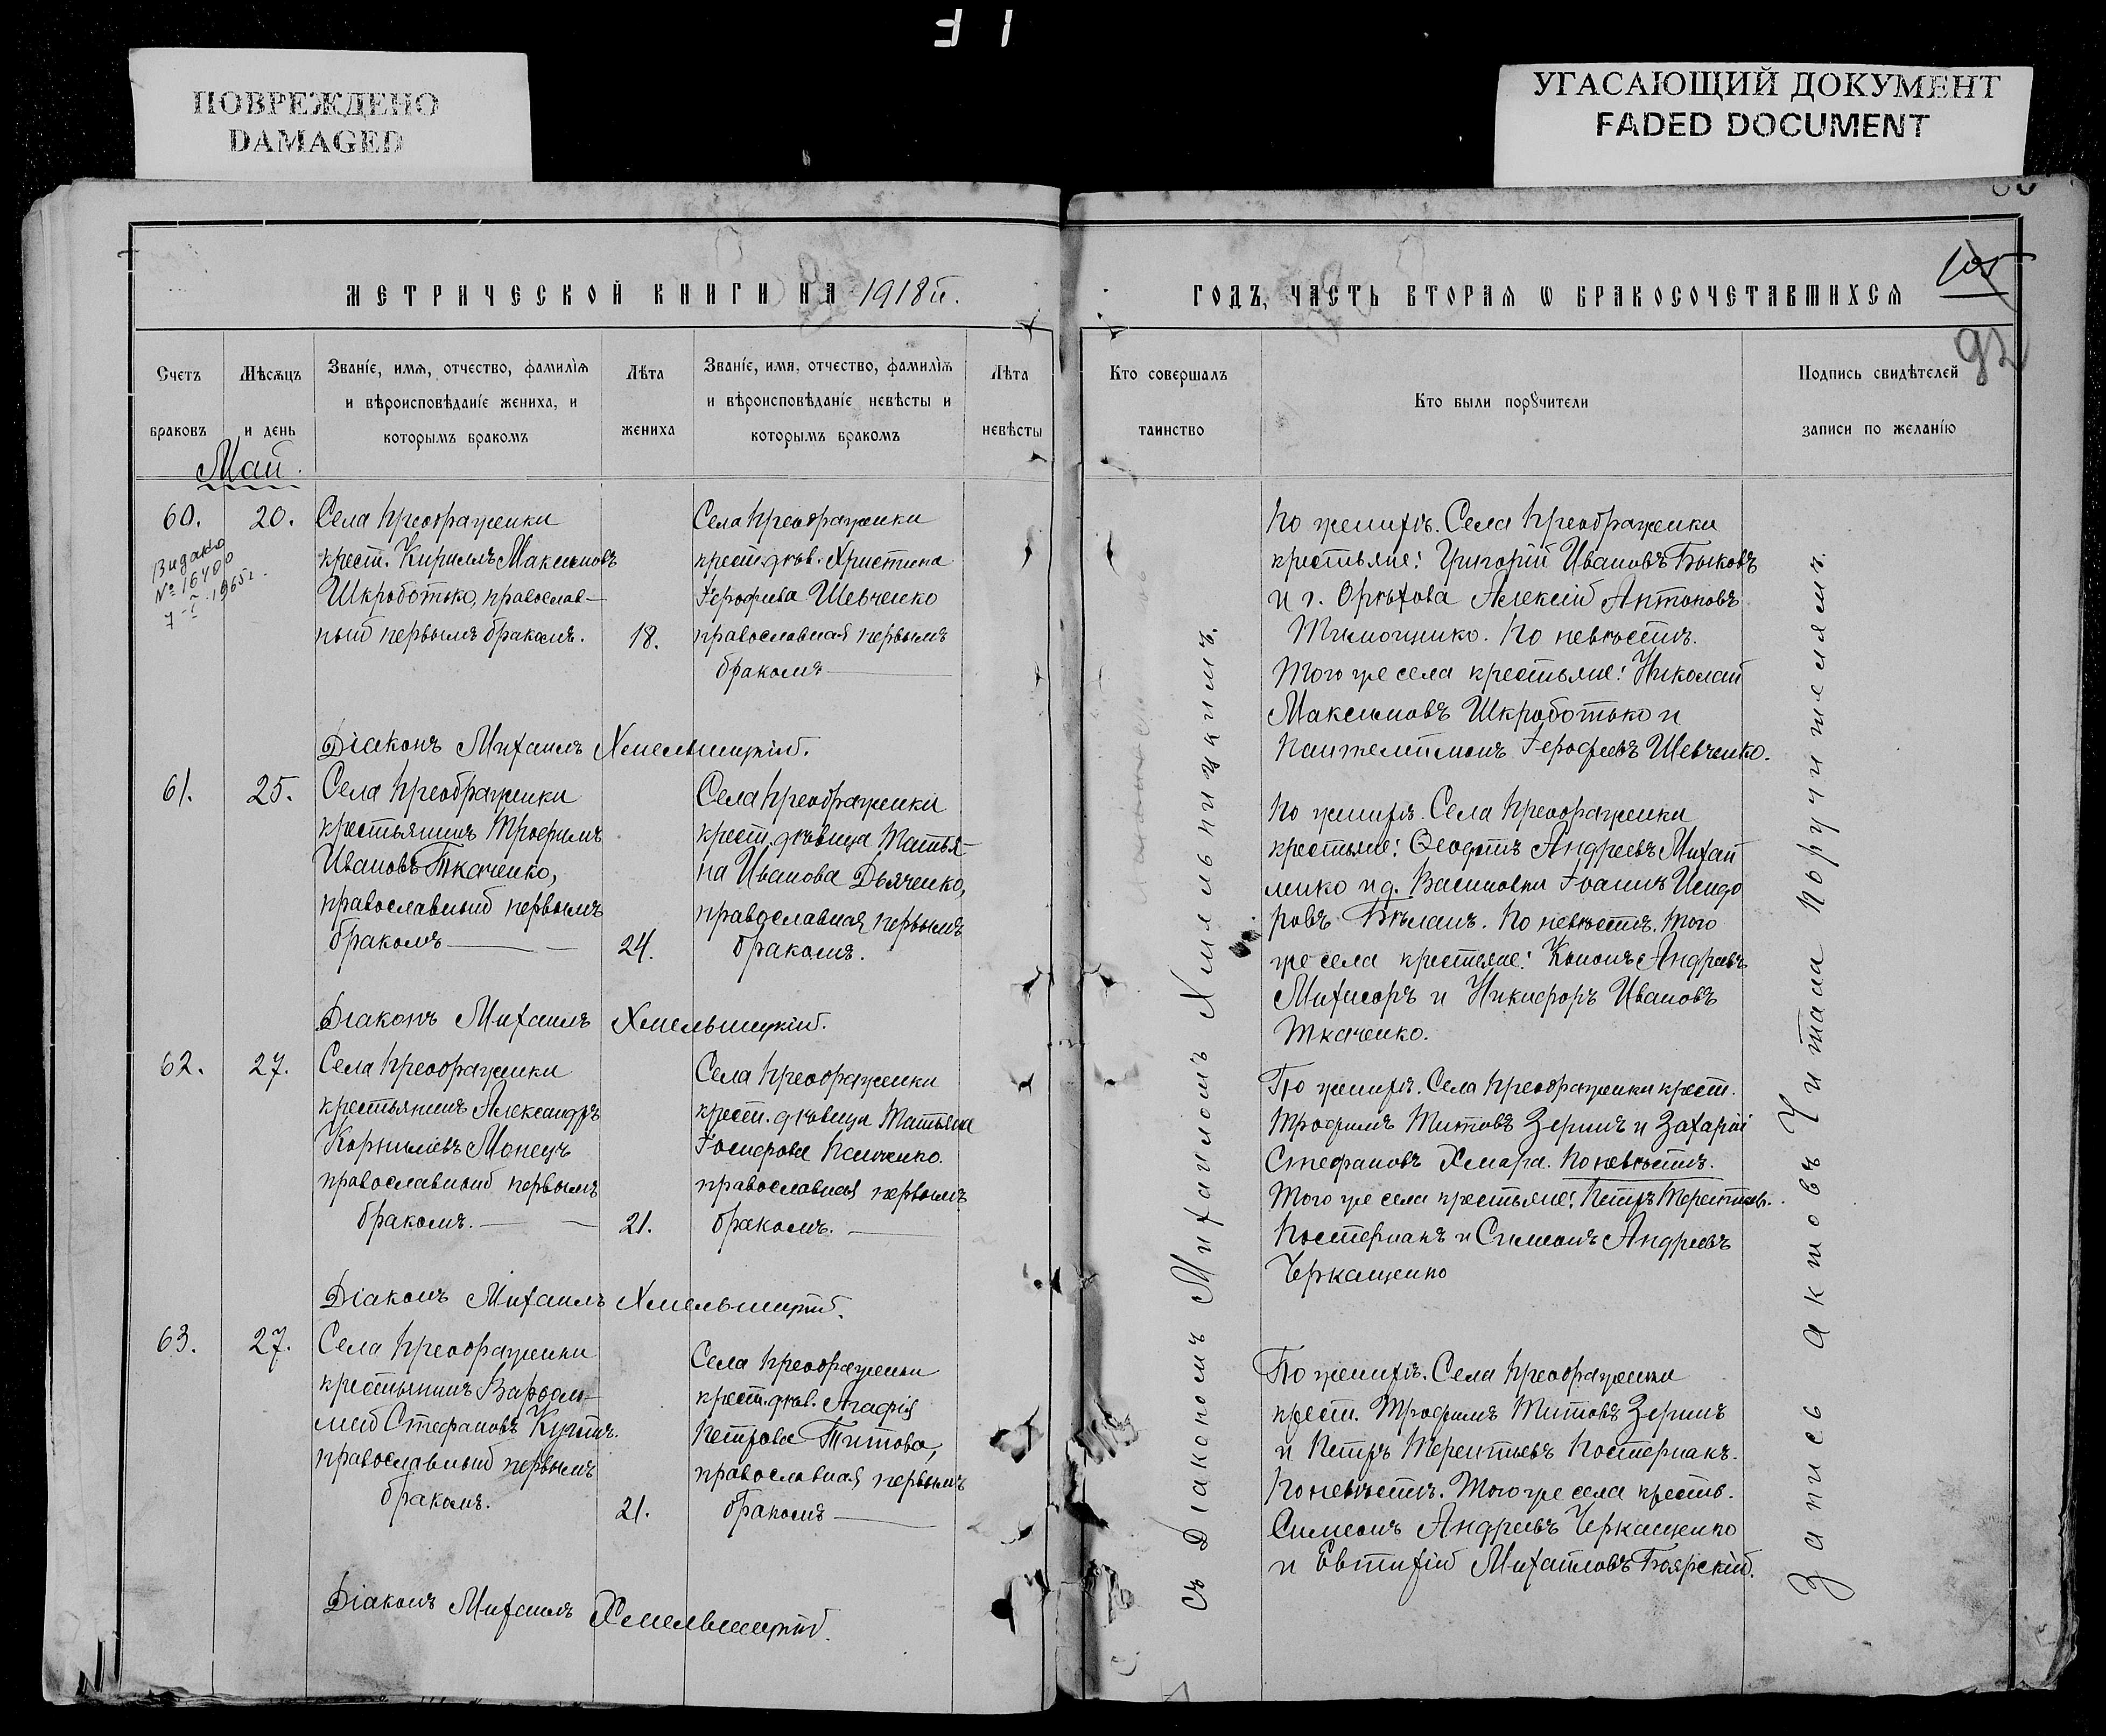 ПОВРЕЖДЕНО
DAMAGED
УГАСАЮЩИЙ ДОКУМЕНТ
FADED DOCUMENT
МЕТРИЧЕСКОЙ КНИГИ НА 1918й.
Счетъ браковъ
Мѣсяцъ и день
Званіе, имя, отчество, фамилія
и вѣроисповѣданіе жениха, и
которымъ бракомъ
Лѣта
жениха
Званіе, имя, отчество, фамилія
и вѣроисповѣданіе невѣсты и
которымъ бракомъ
Лѣта
невѣсты
Май.
60.
20.
Видано
№ 16400
7-I-1965г.
Села Преображенки
крест. Кириллъ Максимовъ
Шкроботько, православ-
ный первымъ бракомъ.
18.
Села Преображенки
крест. дѣв. Христина
Іерофеева Шевченко
православная первымъ
бракомъ
Діаконъ Михаилъ Хмельницкій.
61.
25.
Села Преображенки
крестьянинъ Трофимъ
Ивановъ Ткаченко,
православный первымъ
бракомъ
24.
Села Преображенки
крест. дѣвица Татья-
на Иванова Дьяченко,
православная первымъ
бракомъ.
Діаконъ Михаилъ Хмельницкій.
62.
27.
Села Преображенки
крестьянинъ Александръ
Корниліевъ Монецъ
православный первымъ
бракомъ.
21.
Села Преображенки
крест. дѣвица Татьяна
Іосифова
православная первымъ
бракомъ.
Діаконъ Михаилъ Хмельницкій.
63.
27.
Села Преображенки
крестьянинъ Варфоло-
мей Стефановъ
православный первымъ
бракомъ.
21.
Села Преображенки
крест. дѣв. Агафія
Петрова Титова,
православная первымъ
бракомъ
Діаконъ Михаилъ Хмельницкій.
ГОДЪ, ЧАСТЬ ВТОРАЯ Ѡ БРАКОСОЧЕТАВШИХСЯ
92
Кто совершалъ
таинство
Кто были порȣчители
Подпись свидѣтелей
записи по желанію
съ Діакономъ Михаиломъ Хмельницкимъ.
По женихѣ. Села Преображенки
крестьяне: Григорій Ивановъ Быковъ
и г. Орѣхова Алексій Антоновъ
Тимощенко. По невѣстѣ.
Того же села крестьяне: Николай
Максимовъ Шкроботько и
Пантелимонъ Іерофеевъ Шевченко.
По женихѣ. Села Преображенки
крестьяне: Ѳеодотъ Андреевъ Михай
ленко и д. Васиновки Іоаннъ Исидо
ровъ Бѣланъ. По невѣстѣ. Того
же села крестьяне: Кононъ Андреевъ
и Никифоръ Ивановъ
Ткаченко.
По женихѣ. Села Преображенки крест.
Трофимъ Титовъ Зеринъ и Захарій
Стефановъ Хмара. По невѣстѣ.
Того же села крестьяне: Петръ Терентьев.
Костернакъ и Симеонъ Андреевъ
Черкащенко
По женихѣ. Села Преображенки
крест. Трофимъ Титовъ Зеринъ
и Петръ Терентьевъ Костернакъ.
По невѣстѣ. Того же села крестьв.
Симеонъ Андреевъ Черкащенко
и Евтихій Михайловъ Боярскій.
Запись актовъ читана поручителямъ.